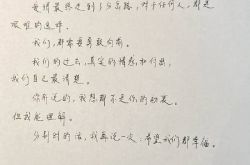 爱情最终走到了分岔路，对于任何人，都是
艰难的选择。
我们，都需要勇敢向前。
我们的过去，真定的情感和付出，
我们自己最清楚。
你所说的，我想那不是你的初衷。
但我能理解。
分别时的话，我再说一次：希望我们都幸福。